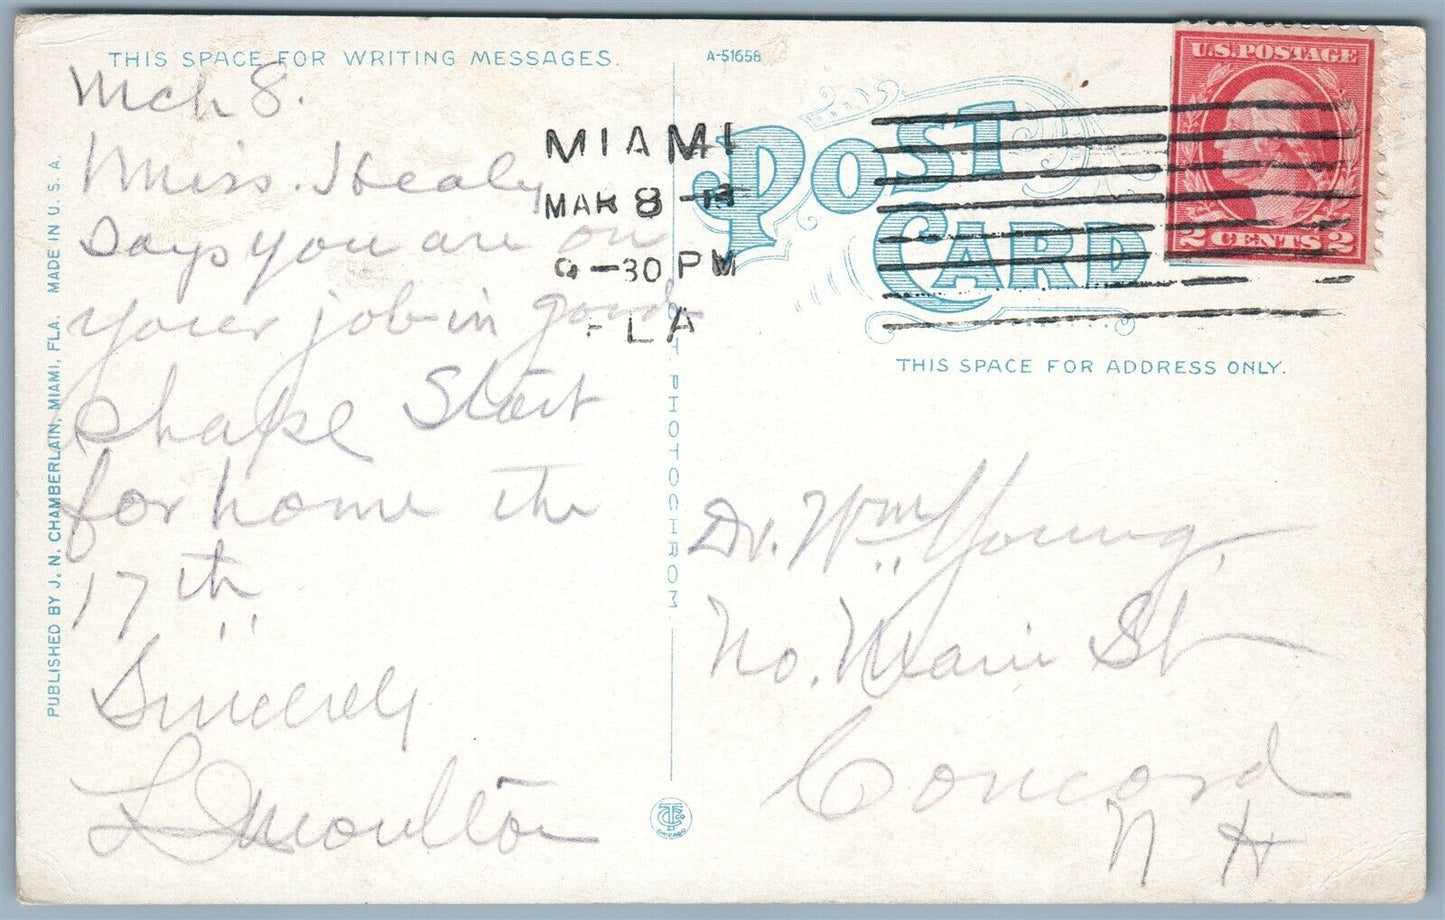 THIS SPACE FOR WRITING MESSAGES.
A-51658
POST
CARD
U.S. POSTAGE
2 CENTS 2
MIAMI
MAR 8
9-30 PM
FLA
THIS SPACE FOR ADDRESS ONLY.
Mch 8.
Miss. Healy
Says you are on
your job in good
shape Start
for home the
17th
Sincerely
Moulton
Dr. Wm Young,
No. Main St
Concord
N H
PUBLISHED BY J. N. CHAMBERLAIN, MIAMI, FLA. MADE IN U. S. A.
PHOTOCHROM
CHICAGO